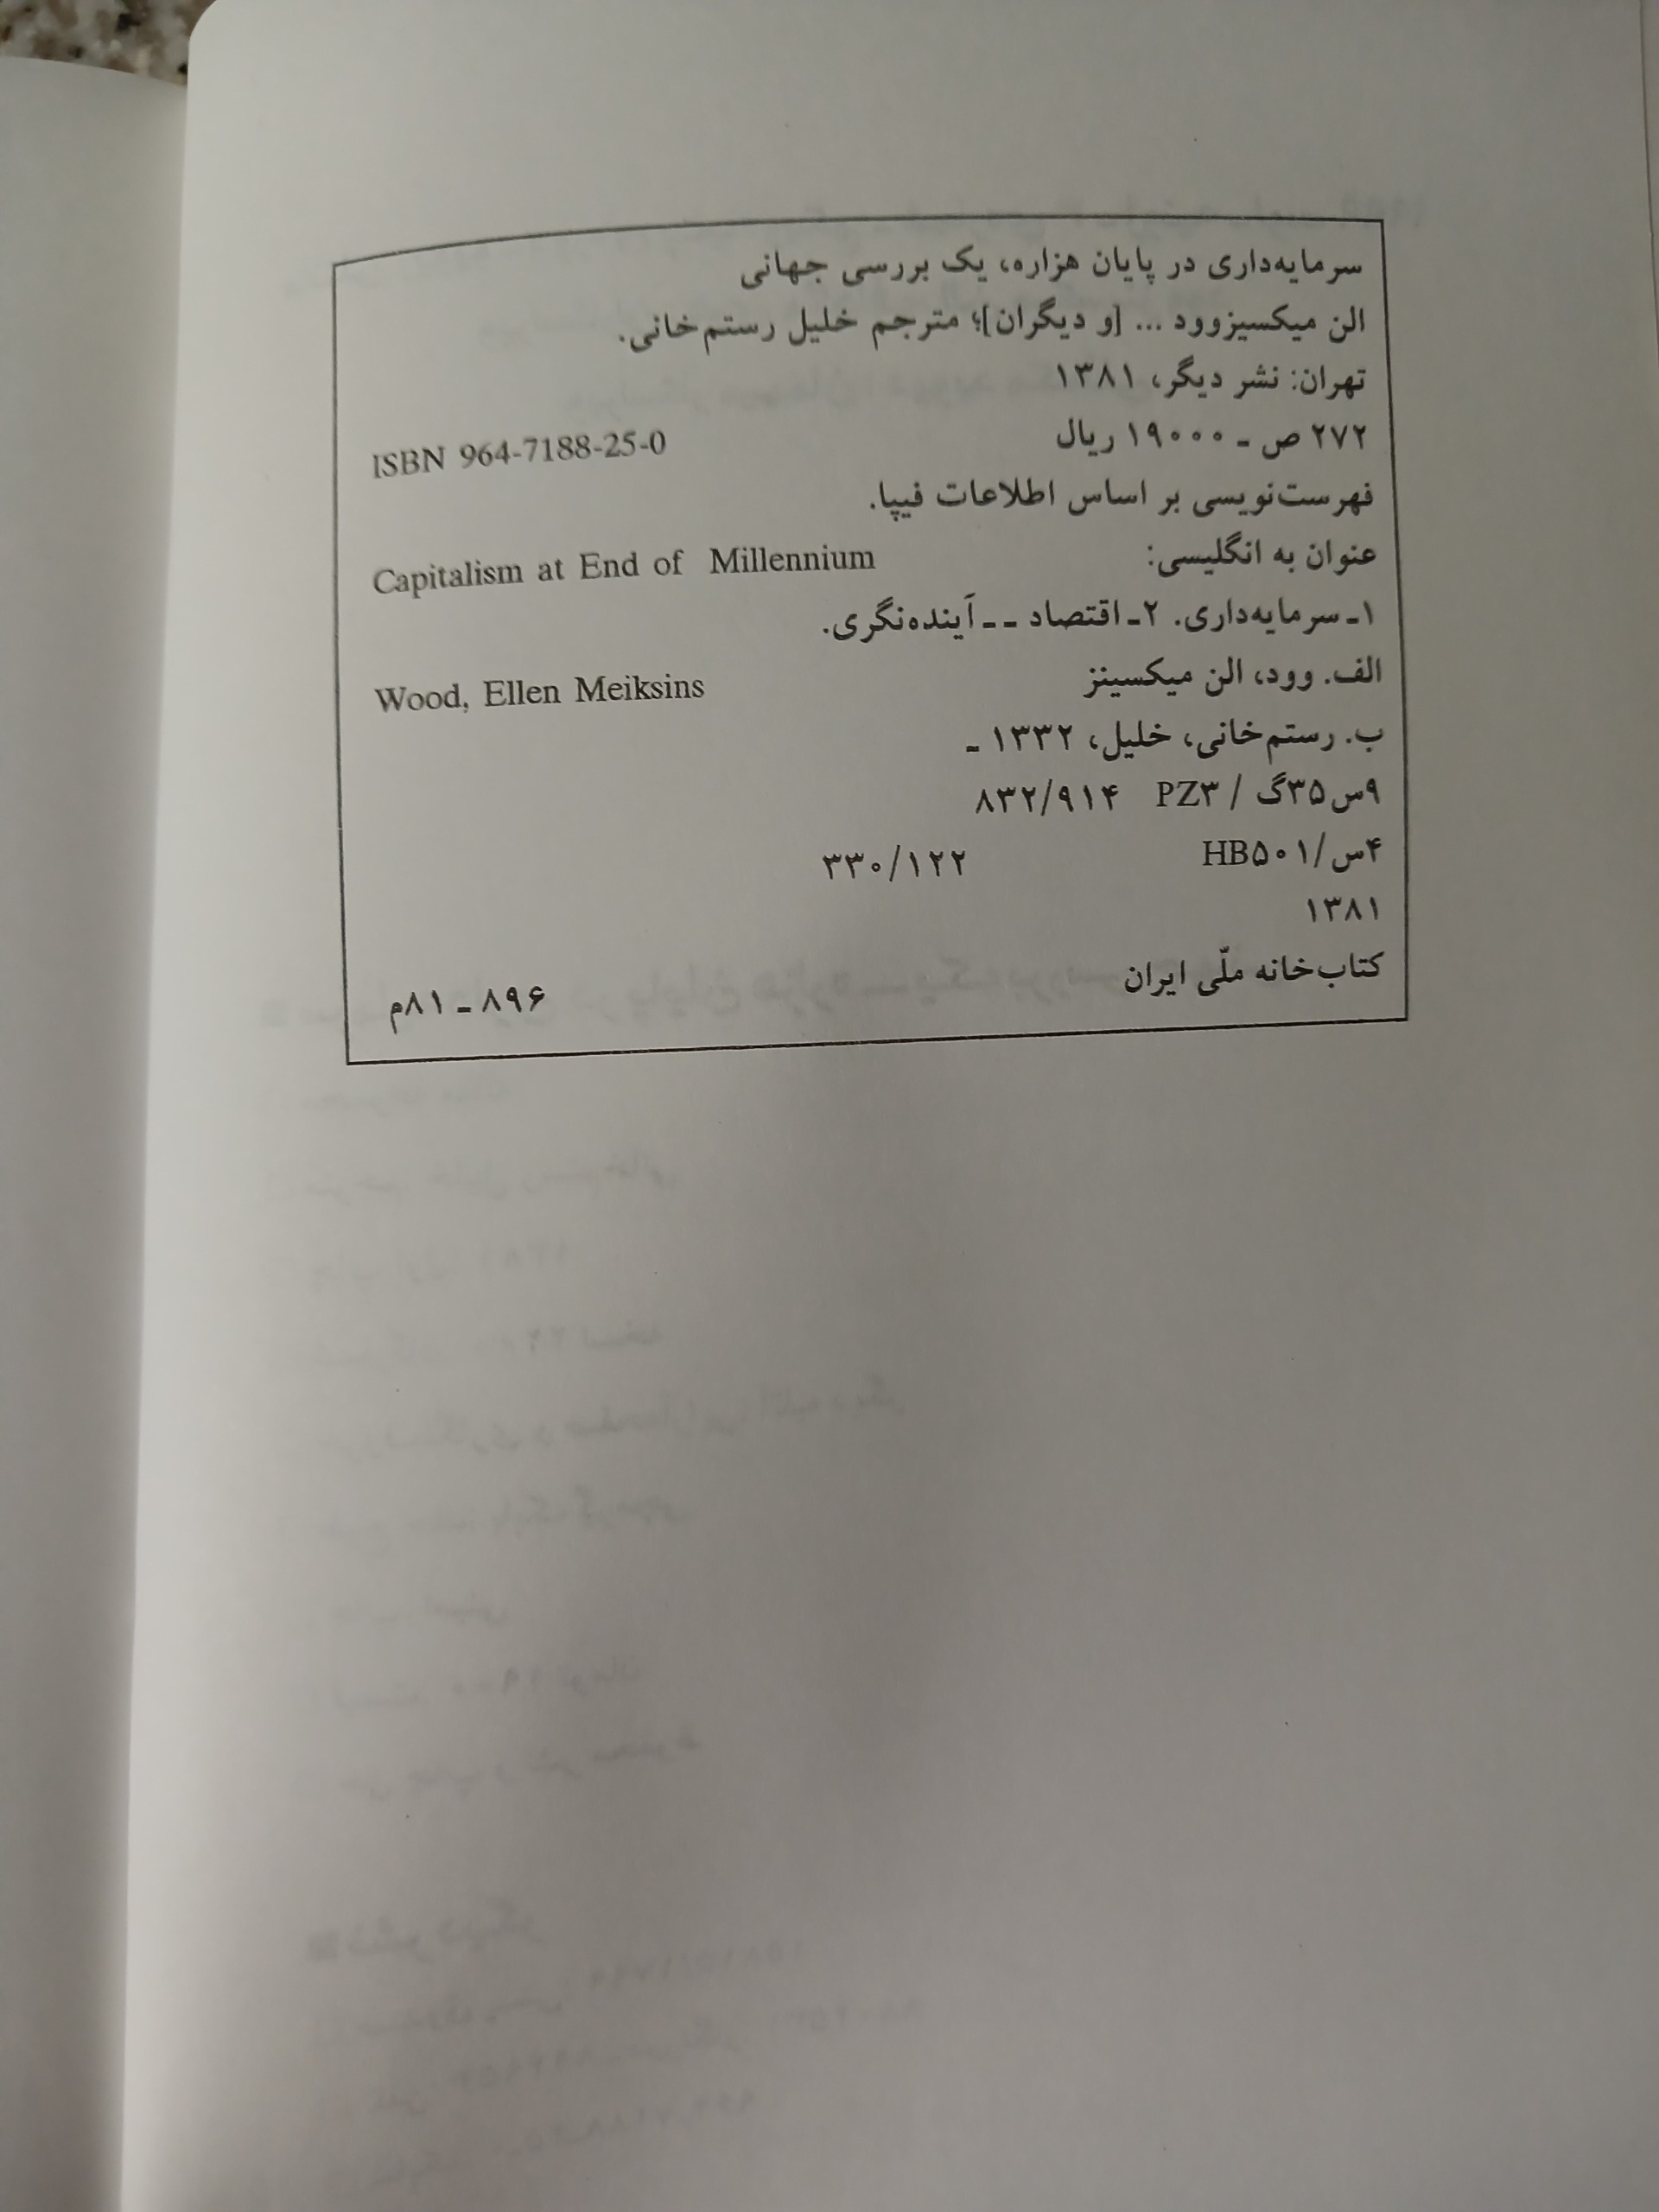 سرمایه‌داری در پایان هزاره، یک بررسی جهانی
الن میکسیزوود ... [و دیگران]؛ مترجم خلیل رستم‌خانی.
تهران: نشر دیگر، ۱۳۸۱
۲۷۲ ص ـ ۱۹۰۰۰ ریال ISBN 964-7188-25-0
فهرست‌نویسی بر اساس اطلاعات فیپا.
عنوان به انگلیسی: Capitalism at End of Millennium
۱ـ سرمایه‌داری. ۲ـ اقتصاد ـ ـ آینده‌نگری.
الف. وود، الن میکسینز Wood, Ellen Meiksins
ب. رستم‌خانی، خلیل، ۱۳۳۲ ـ
۹س۳۵گ / PZ۳ ۸۳۲/۹۱۴
۴س/HB۵۰۱ ۳۳۰/۱۲۲
۱۳۸۱
کتاب‌خانه ملّی ایران ۸۹۶ ـ ۸۱م